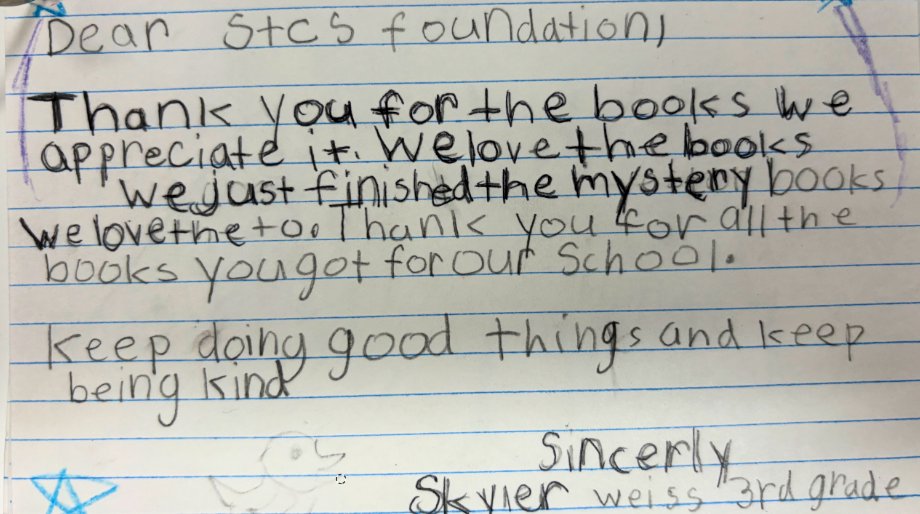 Dear Stcs foundation,
Thank you for the books we
appreciate it. We love the books
we just finished the mystery books
We love the to. Thank you for all the
books you got for our School.
Keep doing good things and keep
being kind
Sincerly
Skyler weiss 3rd grade